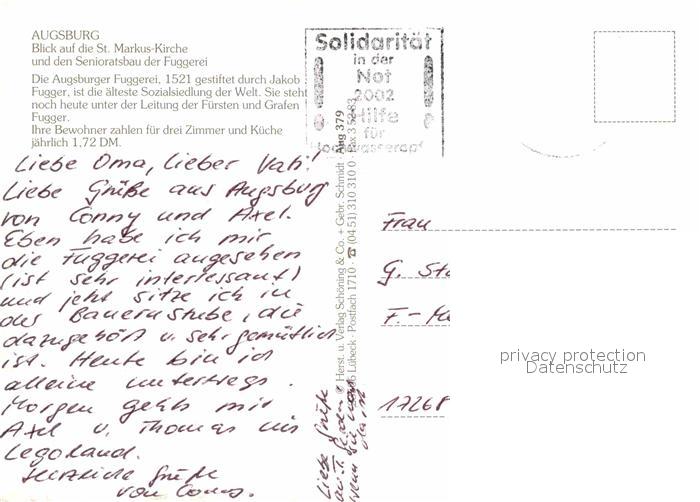 AUGSBURG
Blick auf die St. Markus-Kirche
und den Senioratsbau der Fuggerei
Die Augsburger Fuggerei, 1521 gestiftet durch Jakob
Fugger, ist die älteste Sozialsiedlung der Welt. Sie steht
noch heute unter der Leitung der Fürsten und Grafen
Fugger.
Ihre Bewohner zahlen für drei Zimmer und Küche
jährlich 1,72 DM.
Liebe Oma, lieber Vati!
Liebe Grüße aus Augsburg
von Conny und Axel.
Eben habe ich mir
die Fuggerei angesehen
(ist sehr interessant)
und jetzt sitze ich in
der Bauernstube, die
dazugehört u. sehr gemütlich
ist. Heute bin ich
alleine unterwegs.
Morgen gehts mit
Axel u. Thomas ins
Legoland.
Herzliche Grüße
von Conny.
Liebe Grüße
Solidarität
in der
Not
2002
Hilfe
für
Hochwasseropf
Herst. u. Verlag Schöning & Co. + Gebr. Schmidt · Aug 379
Lübeck · Postfach 1710 · ☎ (04 51) 310 310 0 ·
Frau
G. Sto
F.-
17268
privacy protection
Datenschutz